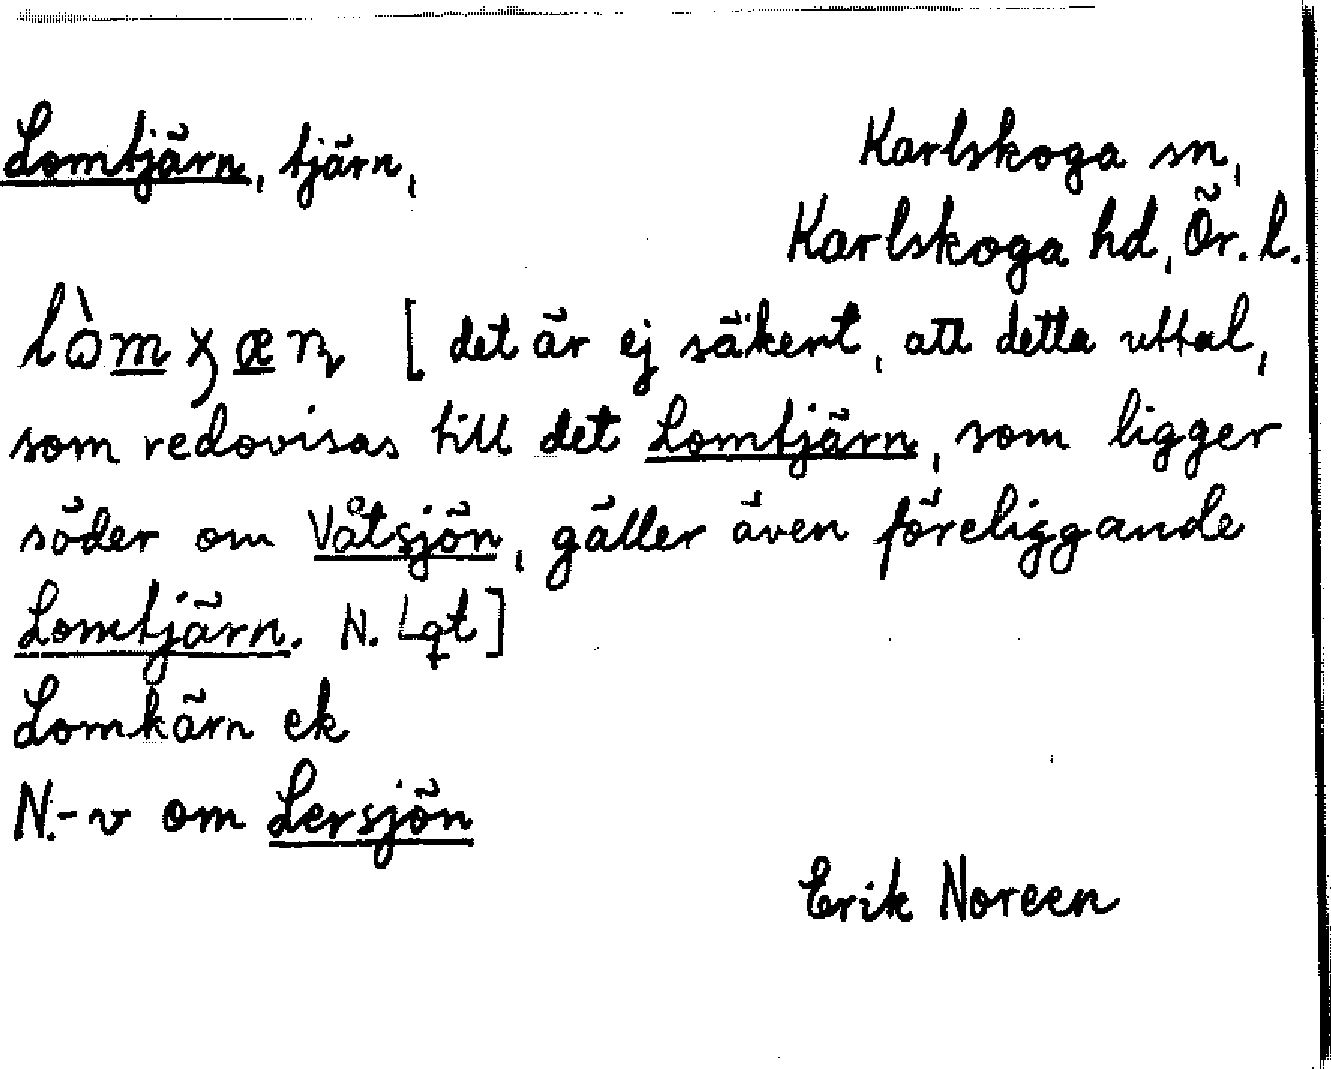 Lomtjärn, tjärn,
Karlskoga sn,
Karlskoga hd, Ör. l.
[det är ej säkert, att detta uttal,
som redovisas till det Lomtjärn, som ligger
söder om Våtsjön, gäller även föreliggande
Lomtjärn. N.
Lomkärn ek
N.-v om Lersjön
Erik Noreen